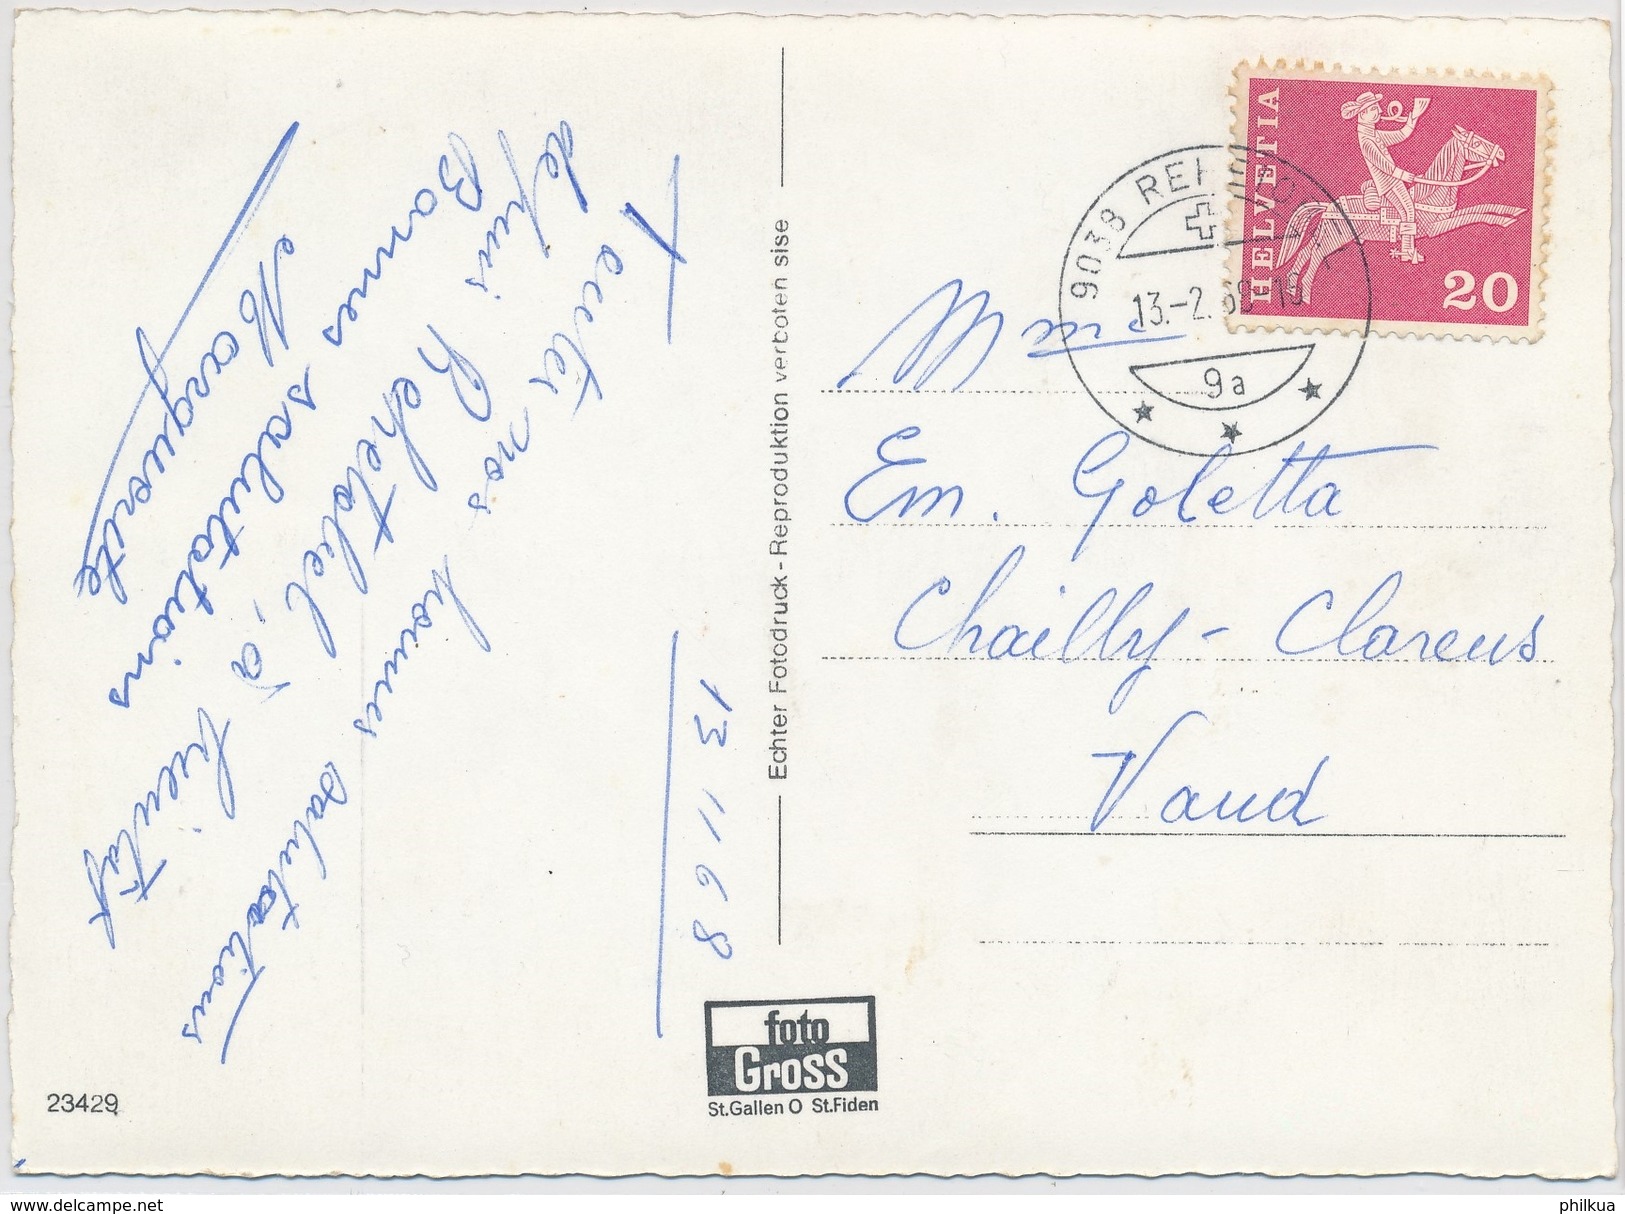 13 11 68
Toutes nos bonnes salutations
depuis Rehetobel, à bientôt
Bonnes salutations
Marguerite
Echter Fotodruck - Reproduktion verboten sise
foto
Gross
St.Gallen O St.Fiden
23429
HELVETIA
20
9038 REHETOBEL
13.-2.68-19
9a
Mme
Em. Goletta
Chailly - Clarens
Vaud
philkua